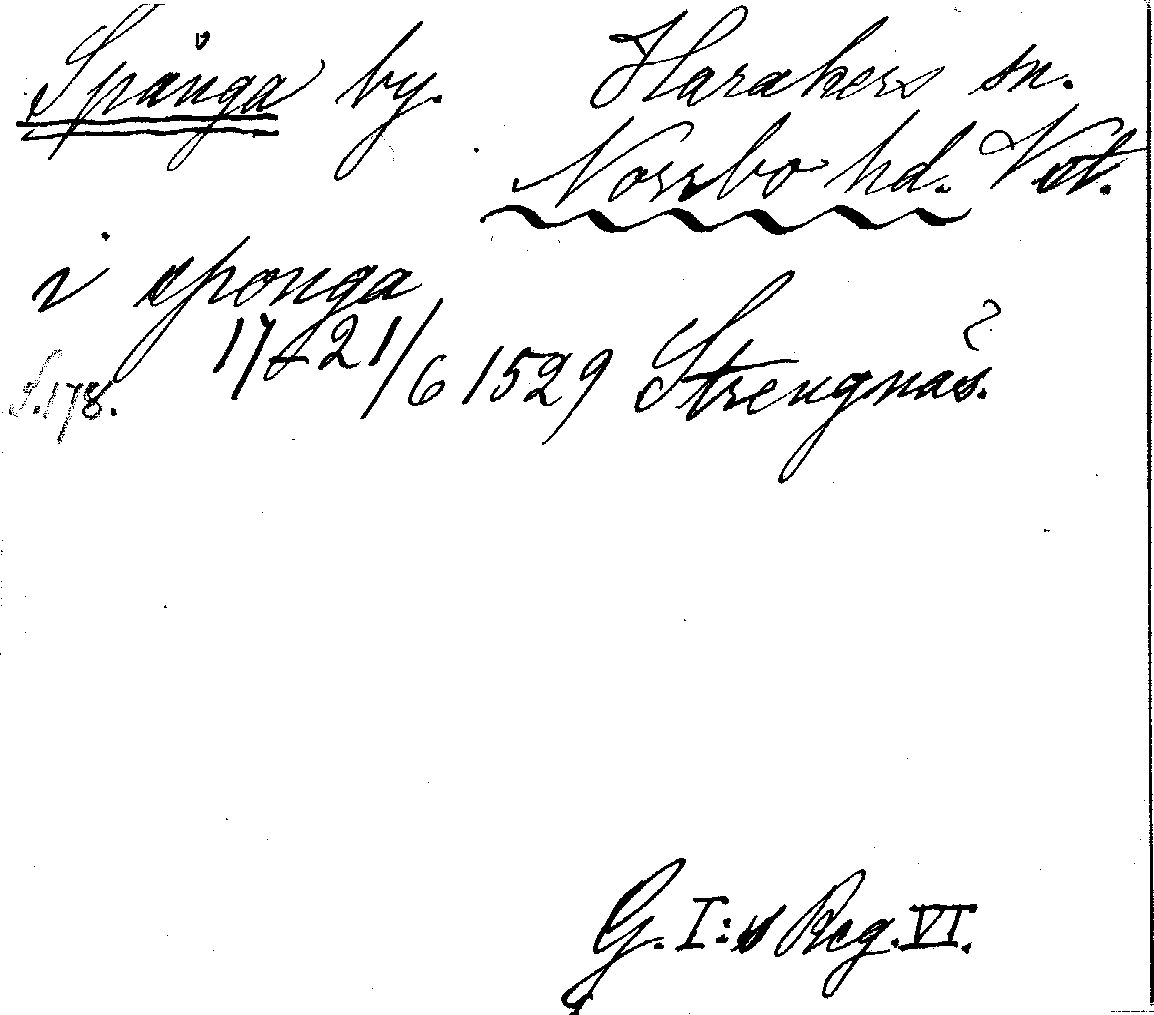 Spånga by. Harakers sn.
Norrbo hd. Vst.
i sponga
17-21/6 1529 Strengnäs.
S. 178.
G. I:s Reg. VI.